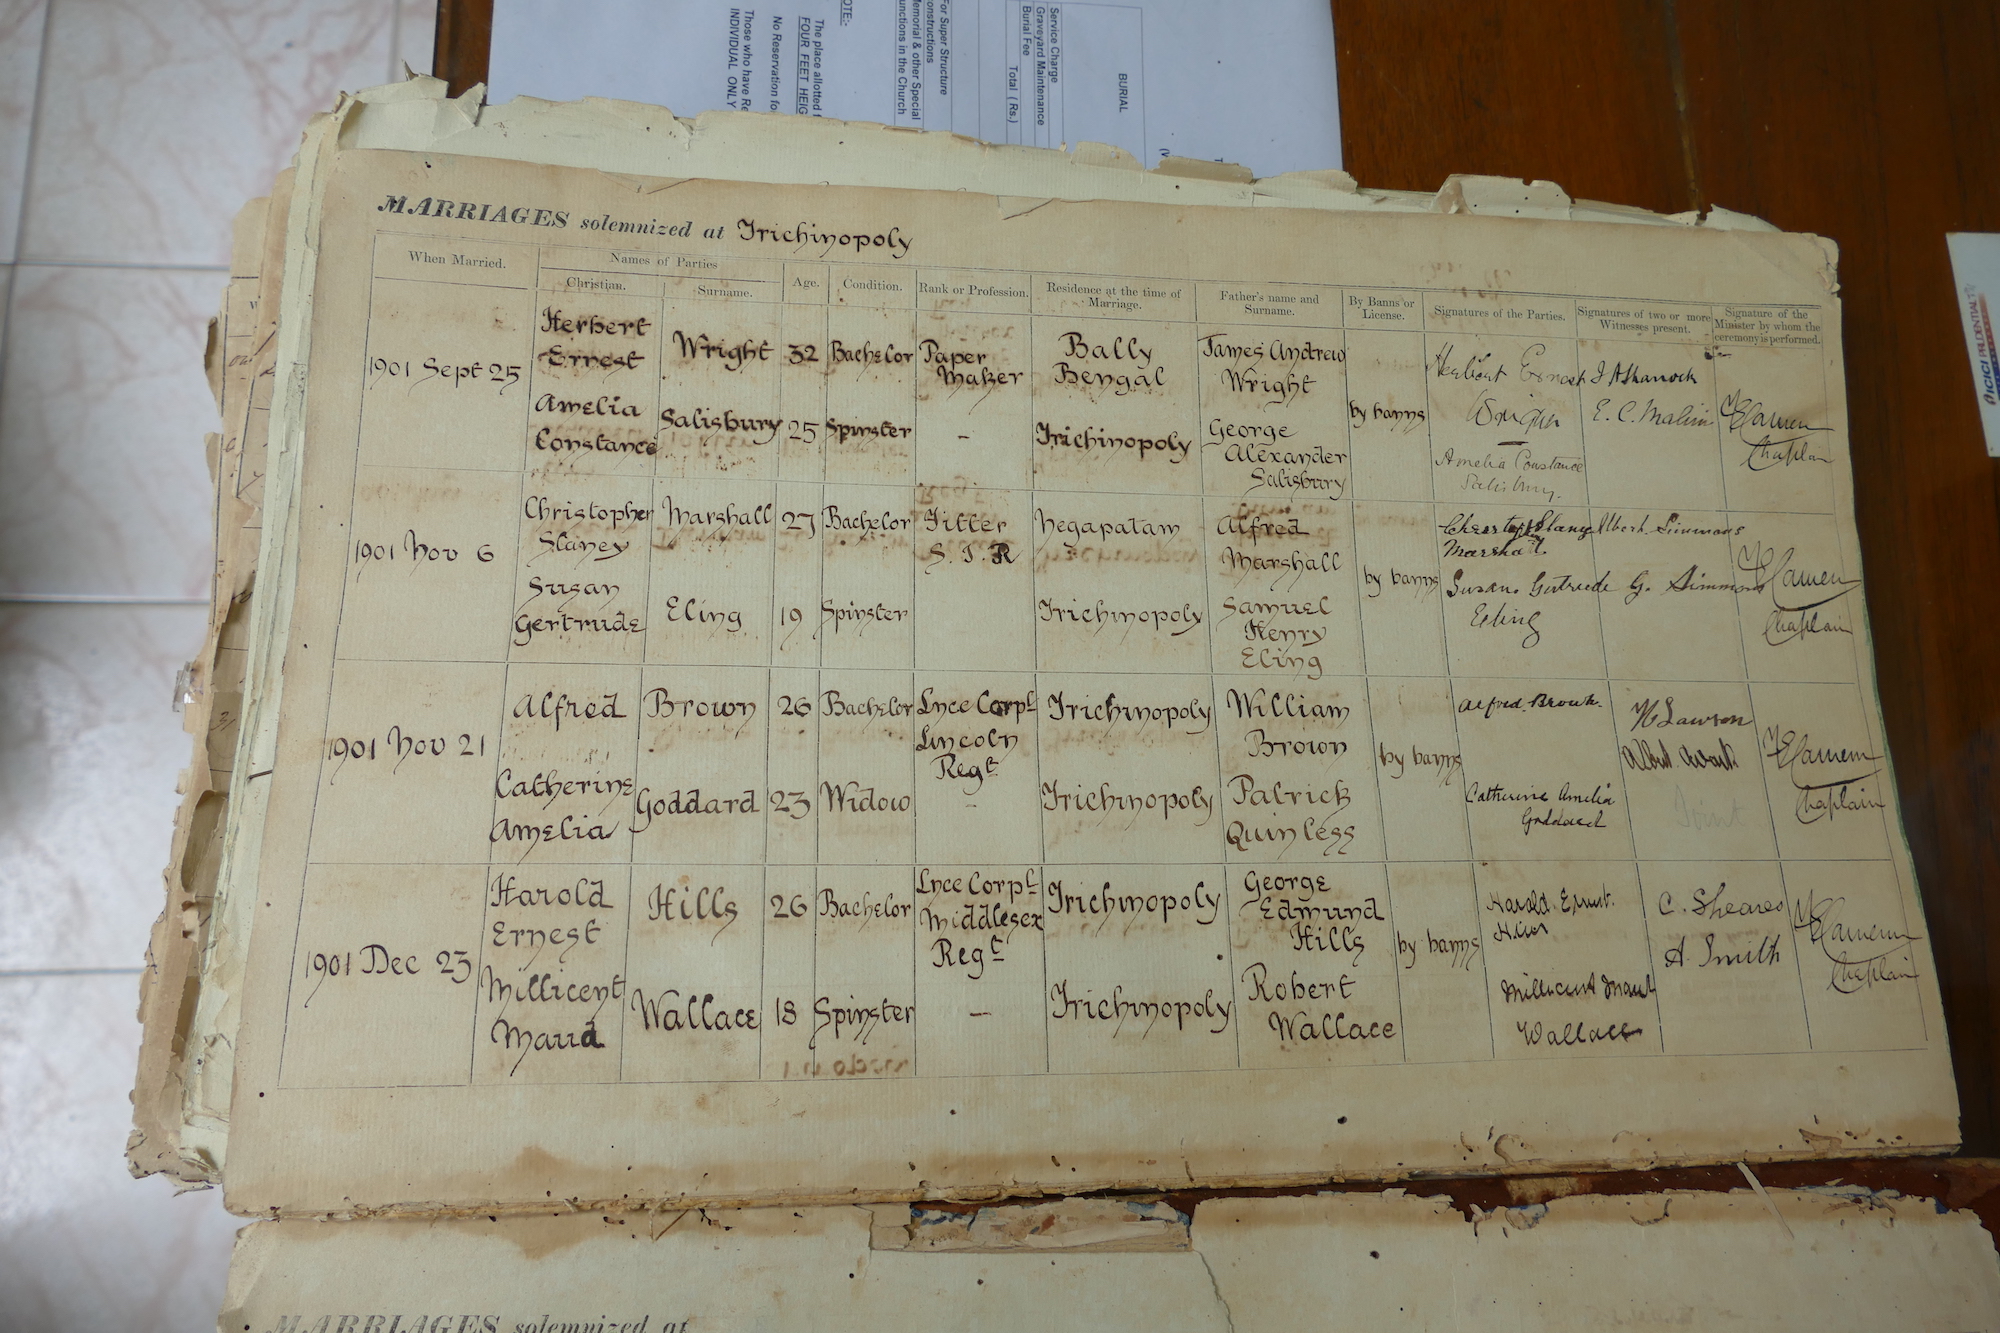 BURIAL
Service Charge
Graveyard Maintenance
Burial Fee
Total (Rs.)
For Super Structure
Constructions
Memorial & other Special
Functions in the Church
NOTE:-
The place allotted
FOUR FEET HEIG
No Reservation fo
Those who have Re
INDIVIDUAL ONLY
ICICI PRUDENTIAL
MARRIAGES solemnized at Trichinopoly
When Married.
Names of Parties
Christian.
Surname.
Age.
Condition.
Rank or Profession.
Residence at the time of
Marriage.
Father's name and
Surname.
By Banns or
License.
Signatures of the Parties.
Signatures of two or more
Witnesses present.
Signature of the
Minister by whom the
ceremony is performed.
1901 Sept 25
Herbert
Ernest
Wright
32
Bachelor
Paper
Maker
Bally
Bengal
James Andrew
Wright
by banns
Herbert Ernest
Wright
Amelia
Constance
Salisbury
25
Spinster
-
Trichinopoly
George
Alexander
Salisbury
Amelia Constance
Salisbury.
E. C. Malim
Chaplain
1901 Nov 6
Christopher
Slaney
Marshall
27
Bachelor
Fitter
S. I. R
Negapatam
Alfred
Marshall
by banns
Christopher Slaney
Marshall
Albert Simmons
Susan
Gertrude
Eling
19
Spinster
Trichinopoly
Samuel
Henry
Eling
Susan Gertrude
Eling
G. Simmons
Chaplain
1901 Nov 21
Alfred
Brown
26
Bachelor
Lnce Corpl
Lincoln
Regt
Trichinopoly
William
Brown
by banns
Alfred Brown.
H Lawson
Catherine
Amelia
Goddard
23
Widow
-
Trichinopoly
Patrick
Quinless
Catherine Amelia
Goddard
Chaplain
1901 Dec 23
Harold
Ernest
Hills
26
Bachelor
Lnce Corpl
Middlesex
Regt
Trichinopoly
George
Edmund
Hills
by banns
Harold Ernest
Hills
C. Sheares
A. Smith
Millicent
Maud
Wallace
18
Spinster
-
Trichinopoly
Robert
Wallace
Millicent Maud
Wallace
Chaplain
MARRIAGES solemnized at